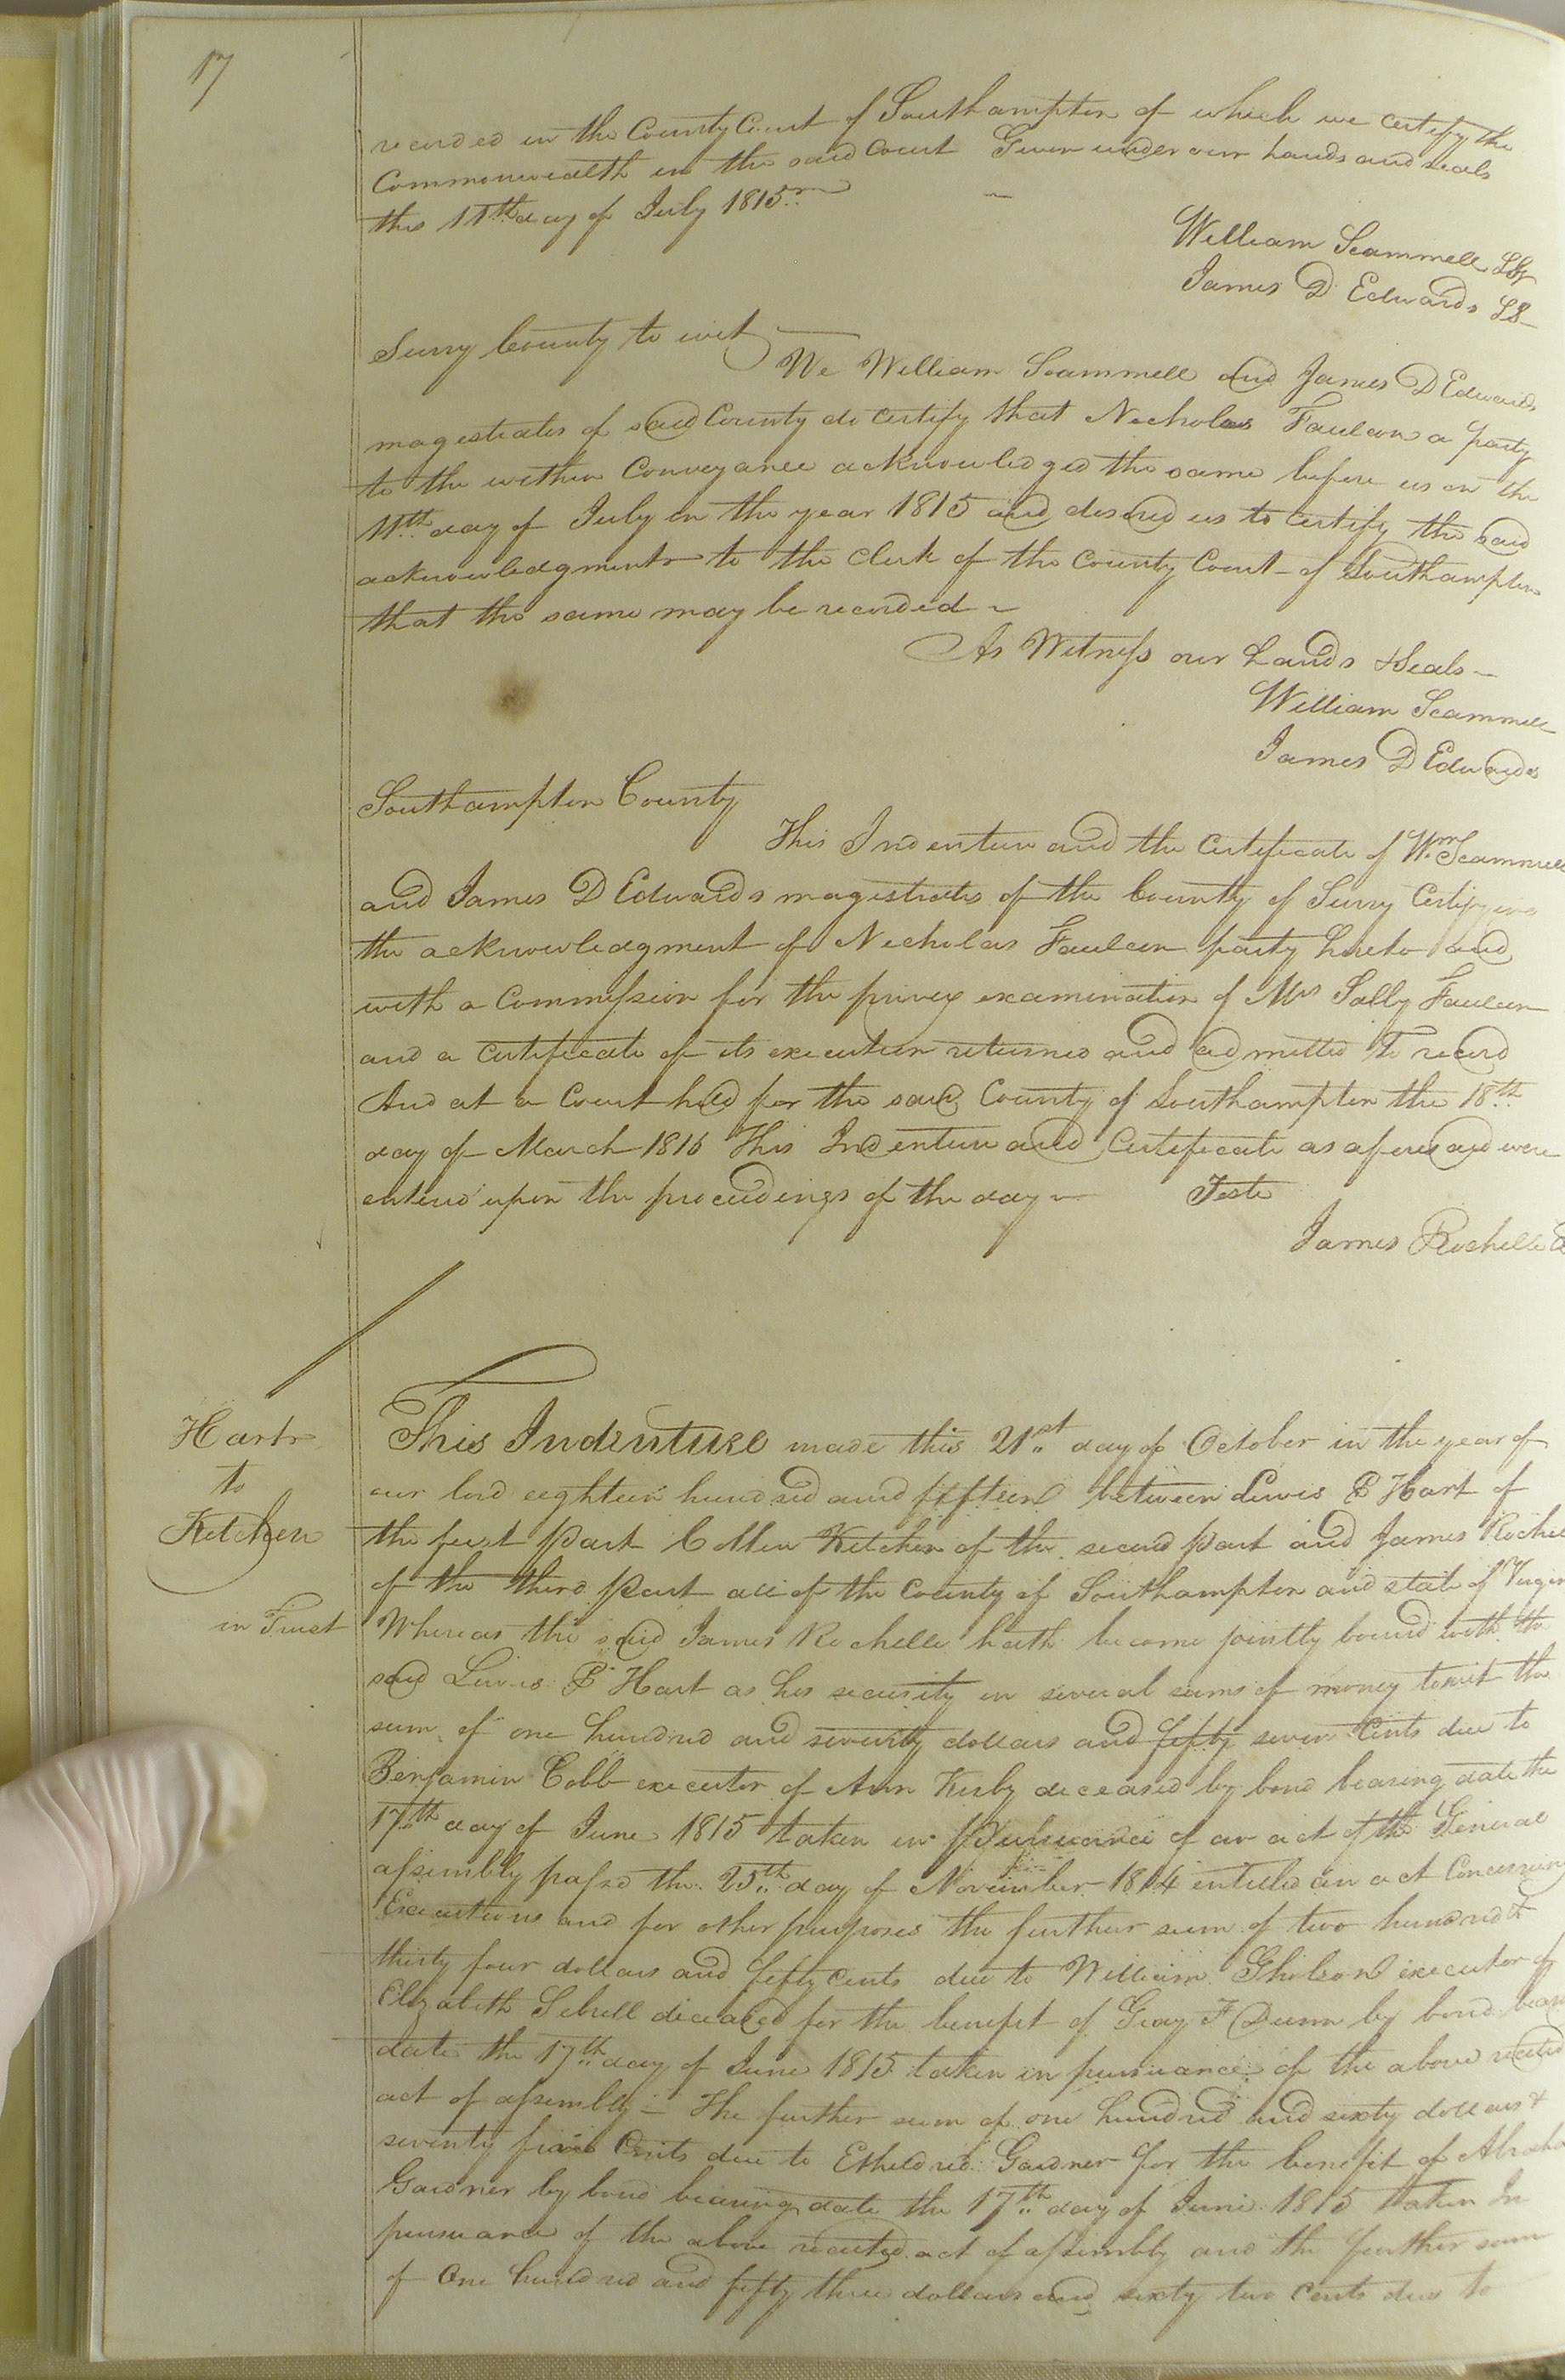 17
recorded in the County Court of Southampton of which we certify the
Commonwealth in the said Court Given under our hands and seals
this 11th day of July 1815
William Scammell LS
James D Edwards LS
Surry County to wit
We William Scammell and James D Edwards
magestrates of said County do certify that Nicholas Faulcon a party
to the within Conveyance acknowledged the same before us on the
11th day of July in the year 1815 and desired us to certify the said
acknowledgment to the Clerk of the County Court of Southampton
that the same may be recorded
As Witness our hands & Seals
William Scammell
James D Edwards
Southampton County
This Indenture and the Certificate of Wm Scammell
and James D Edwards magestrates of the County of Surry Certifying
the acknowledgment of Nicholas Faulcon party hereto and
with a Commission for the privey examination of Mrs Sally Faulcon
and a Certificate of its execution returned and admitted to record
And at a Court held for the said County of Southampton the 18th
day of March 1816 This Indenture and Certificate as aforesaid were
entered upon the proceedings of the day
Teste
James Rochelle
Hart
to
Kitchen
in Trust
This Indenture made this 21st day of October in the year of
our lord eighteen hundred and fifteen between Lewis B Hart of
the first part Collin Kitchen of the second part and James Rochelle
of the third part all of the County of Southampton and state of Virgin
Whereas the said James Rochelle hath become jointly bound with the
said Lewis B Hart as his security in several sums of money towit the
sum of one hundred and seventy dollars and fifty seven Cents due to
Benjamin Cobb executor of Ann Kirby deceased by bond bearing date the
17th day of June 1815 taken in pursuance of an act of the General
assembly passd the 25th day of November 1814 entitled an act Concerning
Executions and for other purposes the further sum of two hundred &
thirty four dollars and fifty cents due to William executor of
Elizabeth deceased for the benefit of Gray F Dunn by bond bear
date the 17th day of June 1815 taken in pursuance of the above recited
act of assembly - The further sum of one hundred and sixty dollars &
seventy five Cents due to Etheldred Gardner for the benefit of
Gardner by bond bearing date the 17th day of June 1815 taken In
pursuance of the above recited act of assembly and the further sum
of One hundred and fifty three dollars and sixty two Cents due to